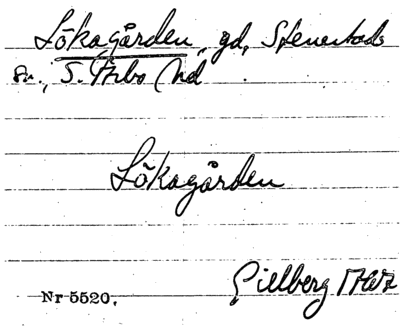 Lökagården, gd, Stenestads
sn., S. Åsbo hd
Lökagården
Gillberg 1767
Nr 5520.